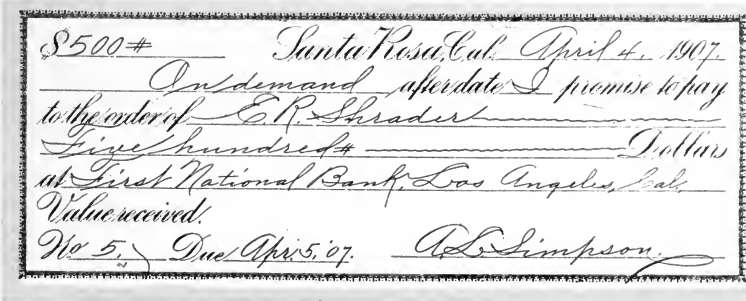 $500# Santa Rosa, Cal. April 4, 1907.
On demand after date I promise to pay
to the order of E. R. Shrader
Five hundred# Dollars
at First National Bank, Los Angeles, Cal.
Value received.
No 5. Due Apr. 5, '07. A L Simpson.